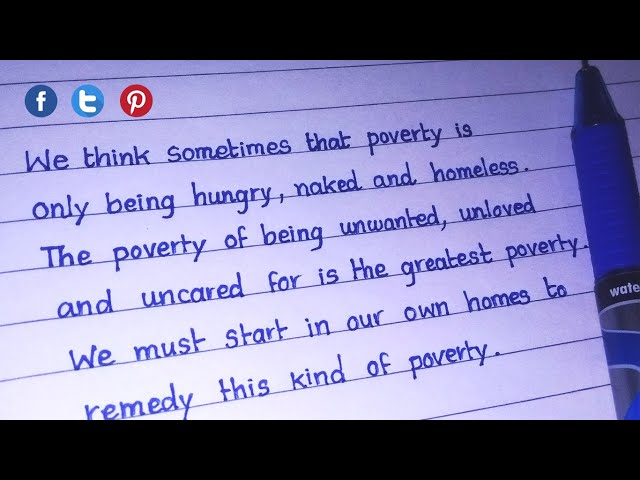 We think sometimes that poverty is
only being hungry, naked and homeless.
The poverty of being unwanted, unloved
and uncared for is the greatest poverty.
We must start in our own homes to
remedy this kind of poverty.
wate